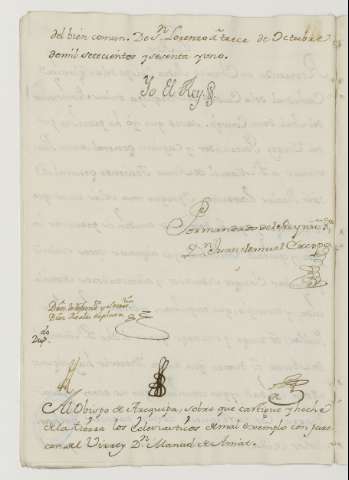 del bien comun. De Sn. Lorenzo à trece de Octubre
de mil setecientos y sesenta y uno.
Yo El Rey
Por mandado del Rey nro. Sr.
Dn. Juan Manuel Crespo
Dup.do
Al Obispo de Arequipa, sobre que castigue, y heche
de la tierra los Eclesiasticos de mal exemplo con pare
cer del Virrey Dn. Manuel de Amat.